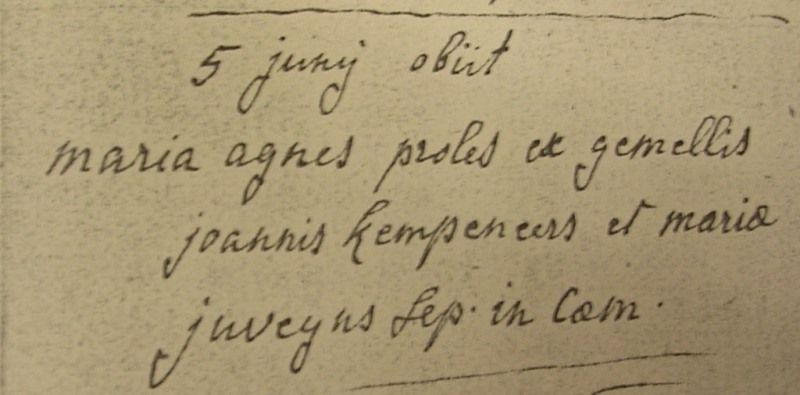 5 junij obiit
maria agnes proles ex gemellis
joannis kempeneers et mariæ
juveyns sep. in Cœm.